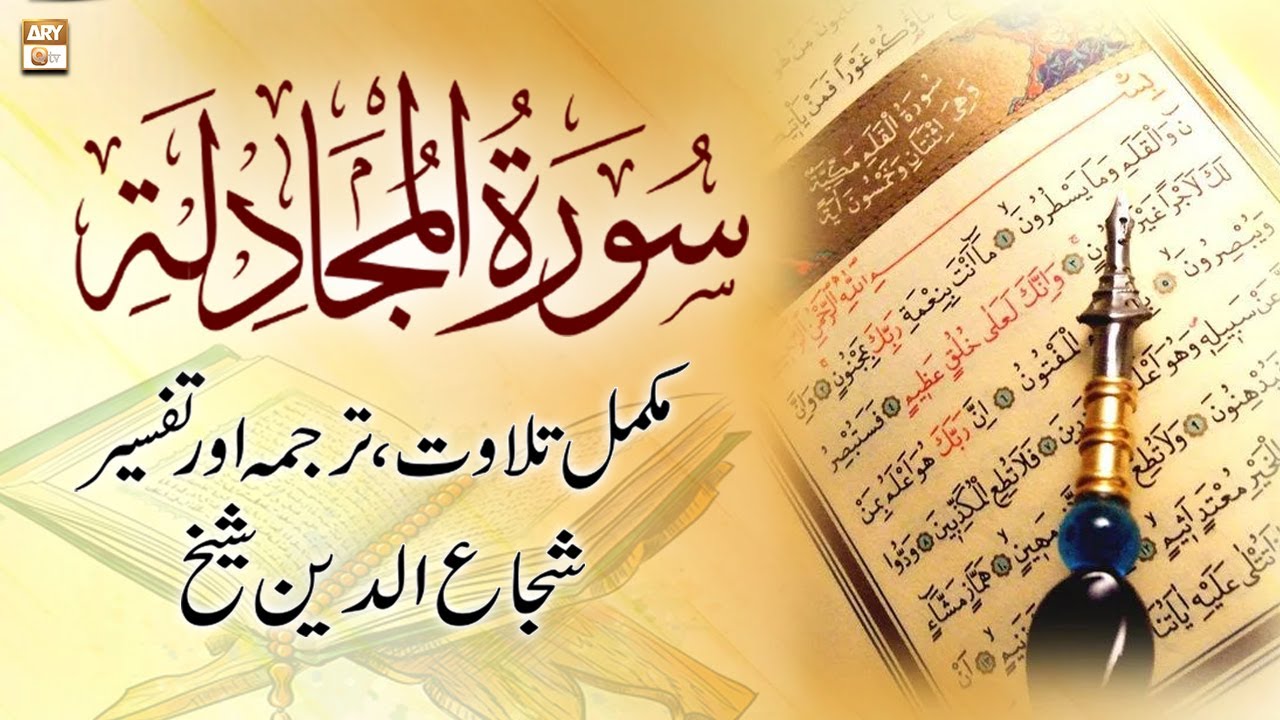 ARY
Qtv
سُورَةُ الْمُجَادِلَةِ
مکمل تلاوت، ترجمہ اور تفسیر
شجاع الدین شیخ
سُورَةُ الْقَلَمِ مَكِّيَّةٌ
وَهِيَ اثْنَتَانِ وَخَمْسُونَ آيَةً
نٓ وَالْقَلَمِ وَمَا يَسْطُرُونَ ۱ مَآ اَنْتَ بِنِعْمَةِ رَبِّكَ بِمَجْنُونٍ ۲ وَاِنَّ
لَكَ لَاَجْرًا غَيْرَ وَاِنَّكَ لَعَلٰى خُلُقٍ عَظِيمٍ ۴ فَسَتُبْصِرُ
وَيُبْصِرُونَ ۵ الْمَفْتُونُ ۶ اِنَّ رَبَّكَ هُوَ اَعْلَمُ بِمَنْ
عَنْ سَبِيلِهِ وَهُوَ اَعْلَمُ فَلَا تُطِعِ الْمُكَذِّبِينَ ۸ وَدُّوا
فَيُدْهِنُونَ ۹ وَلَا تُطِعْ مَهِينٍ ۱۰ هَمَّازٍ مَشَّآءٍ
لِلْخَيْرِ مُعْتَدٍ اَثِيمٍ ۱۲ زَنِيمٍ ۱۳ اَنْ
تُتْلٰى عَلَيْهِ اٰيَاتُنَا